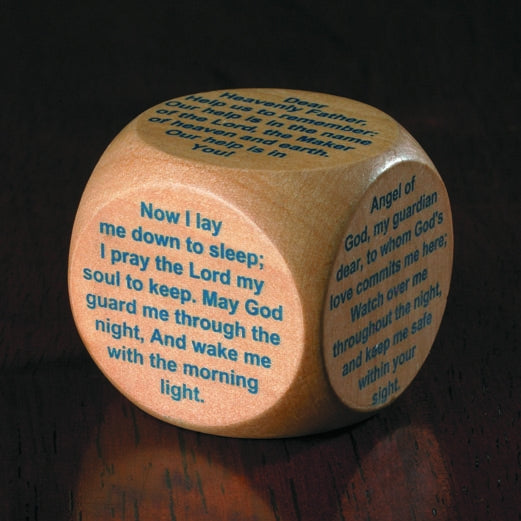 Dear
Heavenly Father,
Help us to remember:
Our help is in the name
of the Lord, the Maker
of heaven and earth.
Our help is in
You!
Now I lay
me down to sleep;
I pray the Lord my
soul to keep. May God
guard me through the
night, And wake me
with the morning
light.
Angel of
God, my guardian
dear, to whom God's
love commits me here;
Watch over me
throughout the night,
and keep me safe
within your
sight.